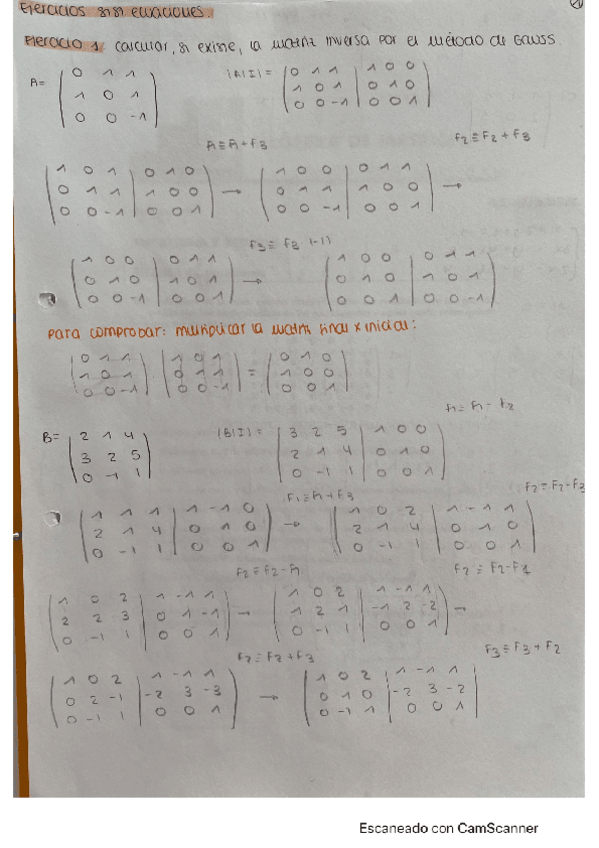 Ejercicios sis ecuaciones.
Ejercicio 1: calcular, si existe, la matriz inversa por el método de Gauss.
A= ( 0 1 1 / 1 0 1 / 0 0 -1 ) (A|I) = ( 0 1 1 | 1 0 0 / 1 0 1 | 0 1 0 / 0 0 -1 | 0 0 1 )
F1 ≡ F1 + F3 F2 ≡ F2 + F3
( 1 0 1 | 0 1 0 / 0 1 1 | 1 0 0 / 0 0 -1 | 0 0 1 ) → ( 1 0 0 | 0 1 1 / 0 1 1 | 1 0 0 / 0 0 -1 | 0 0 1 ) →
F3 ≡ F3 (-1)
( 1 0 0 | 0 1 1 / 0 1 0 | 1 0 1 / 0 0 -1 | 0 0 1 ) → ( 1 0 0 | 0 1 1 / 0 1 0 | 1 0 1 / 0 0 1 | 0 0 -1 )
Para comprobar: multiplicar la matriz final x inicial:
( 0 1 1 / 1 0 1 / 0 0 -1 ) · ( 1 0 1 / 0 1 1 / 0 0 -1 ) = ( 0 1 0 / 1 0 0 / 0 0 1 )
F1 = F1 - F2
B= ( 2 1 4 / 3 2 5 / 0 -1 1 ) (B|I) = ( 3 2 5 | 1 0 0 / 2 1 4 | 0 1 0 / 0 -1 1 | 0 0 1 )
F1 ≡ F1 + F3 F2 ≡ F2 - F3
( 1 1 1 | 1 -1 0 / 2 1 4 | 0 1 0 / 0 -1 1 | 0 0 1 ) → ( 1 0 2 | 1 -1 1 / 2 1 4 | 0 1 0 / 0 -1 1 | 0 0 1 )
F2 ≡ F2 - F1 F2 ≡ F2 - F1
( 1 0 2 | 1 -1 1 / 2 2 3 | 0 1 -1 / 0 -1 1 | 0 0 1 ) → ( 1 0 2 | 1 -1 1 / 1 2 1 | -1 2 -2 / 0 -1 1 | 0 0 1 ) →
F2 ≡ F2 + F3 F3 ≡ F3 + F2
( 1 0 2 | 1 -1 1 / 0 2 -1 | -2 3 -3 / 0 -1 1 | 0 0 1 ) → ( 1 0 2 | 1 -1 1 / 0 1 0 | -2 3 -2 / 0 -1 1 | 0 0 1 )
Escaneado con CamScanner